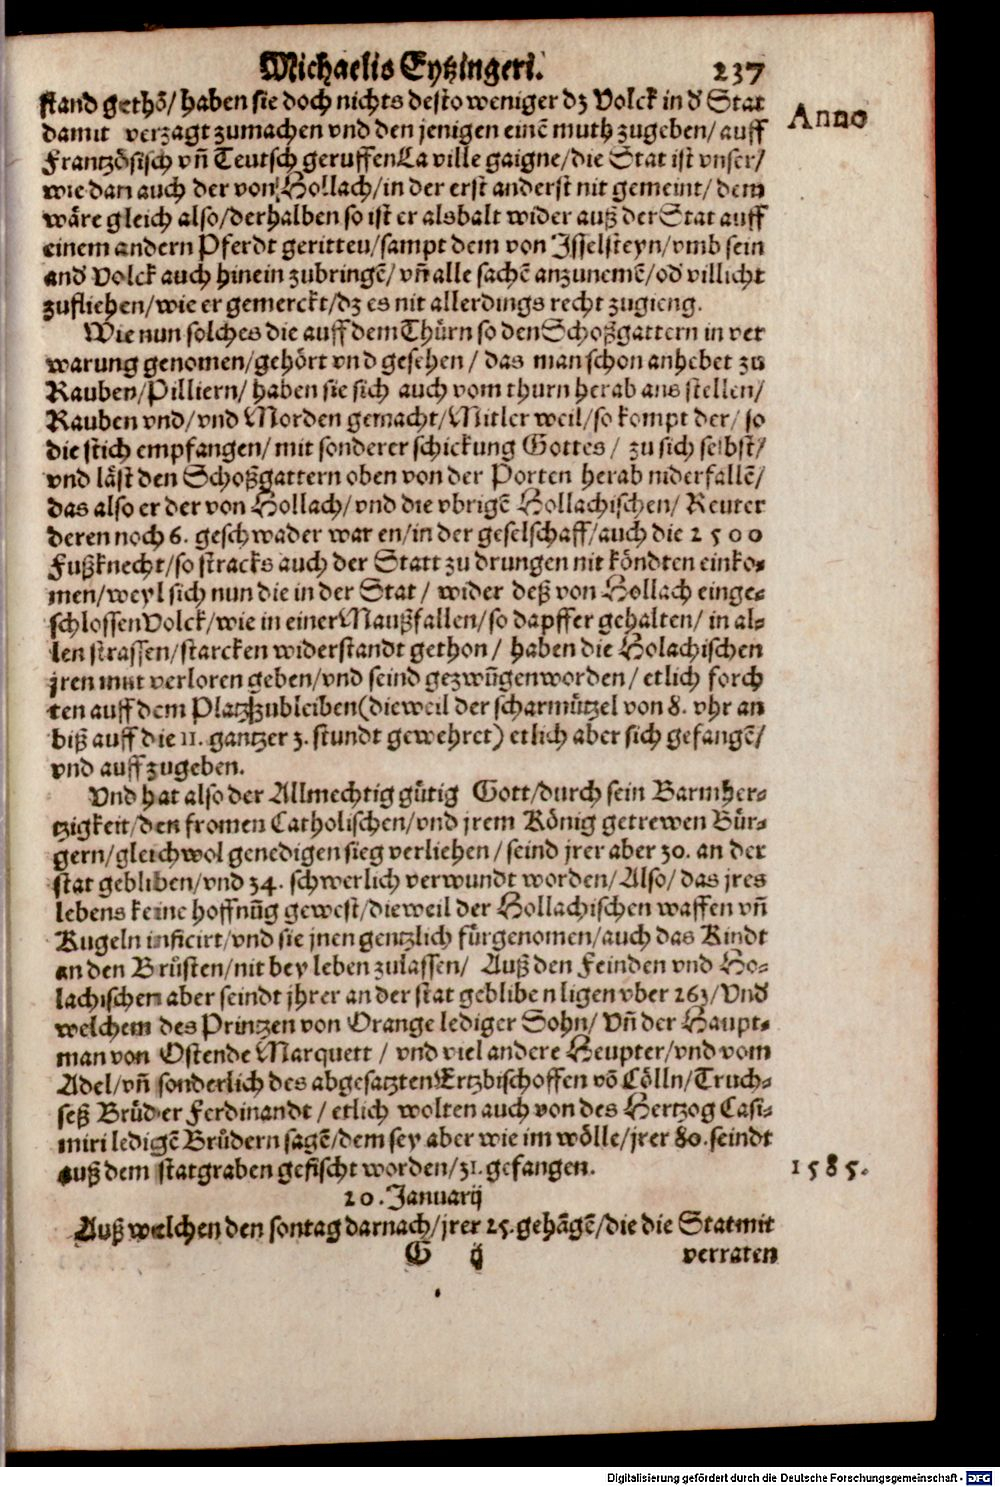 Michaelis Eytzingeri. 237
Anno
stand gethõ/ haben sie doch nichts desto weniger dz Volck in d' Stat
damit verzagt zumachen vnd den jenigen einẽ muth zugeben/ auff
Frantzösisch vñ Teutsch geruffen La ville gaigne/die Stat ist vnser/
wie dan auch der von Hollach/in der erst anderst nit gemeint/ dem
wäre gleich also/derhalben so ist er alsbalt wider auß der Stat auff
einem andern Pferdt geritten/sampt dem von Isselsteyn/vmb sein
and' Volck auch hinein zubringẽ/ vñ alle sachẽ anzunemẽ/od' villicht
zufliehen/wie er gemerckt/dz es nit allerdings recht zugieng.
Wie nun solches die auff dem Thürn so den Schoßgattern in ver
warung genomen/gehört vnd gesehen/ das man schon anhebet zu
Rauben/Pilliern/ haben sie sich auch vom thurn herab ans stellen/
Rauben vnd/vnd Morden gemacht/Mitler weil/so kompt der/ so
die stich empfangen/ mit sonderer schickung Gottes/ zu sich selbst/
vnd läst den Schoßgattern oben von der Porten herab niderfallẽ/
das also er der von Hollach/vnd die vbrigẽ Hollachischen/ Reuter
deren noch 6. geschwader war en/in der geselschaff/auch die 2500
Fußknecht/so stracks auch der Statt zu drungen nit köndten einko-
men/weyl sich nun die in der Stat/ wider deß von Hollach einge-
schlossen Volck/wie in einer Maußfallen/so dapffer gehalten/ in al-
len strassen/starcken widerstandt gethon/ haben die Holachischen
jren mut verloren geben/vnd seind gezwũgen worden/ etlich forch
ten auff dem Platz zubleiben(dieweil der scharmützel von 8. vhr an
biß auff die 11. gantzer 3. stundt gewehret) etlich aber sich gefangẽ/
vnd auff zugeben.
Vnd hat also der Allmechtig gütig Gott/durch sein Barmher-
tzigkeit/den fromen Catholischen/vnd jrem König getrewen Bür-
gern/gleichwol genedigen sieg verliehen/ seind jrer aber 30. an der
stat gebliben/vnd 34. schwerlich verwundt worden/ Also/ das jres
lebens keine hoffnũg gewest/dieweil der Hollachischen waffen vñ
Kugeln inficirt/vnd sie jnen gentzlich fürgenomen/auch das Kindt
an den Brüsten/nit bey leben zulassen/ Auß den Feinden vnd Ho-
lachischen aber seindt jhrer an der stat geblibe n ligen vber 263/Vnd'
welchem des Printzen von Orange lediger Sohn/ Vñ der Haupt-
man von Ostende Marquett/ vnd viel andere Heupter/vnd vom
Adel/vñ sonderlich des abgesatzten Ertzbischoffen võ Cölln/Truch-
seß Brüder Ferdinandt/ etlich wolten auch von des Hertzog Casi-
miri ledigẽ Brüdern sagẽ/dem sey aber wie im wölle/jrer 80. seindt
auß dem statgraben gefischt worden/31. gefangen.
1585.
20. Januarij
Auß welchen den sontag darnach/jrer 25. gehãgẽ/die die Stat mit
G ij verraten
Digitalisierung gefördert durch die Deutsche Forschungsgemeinschaft - DFG